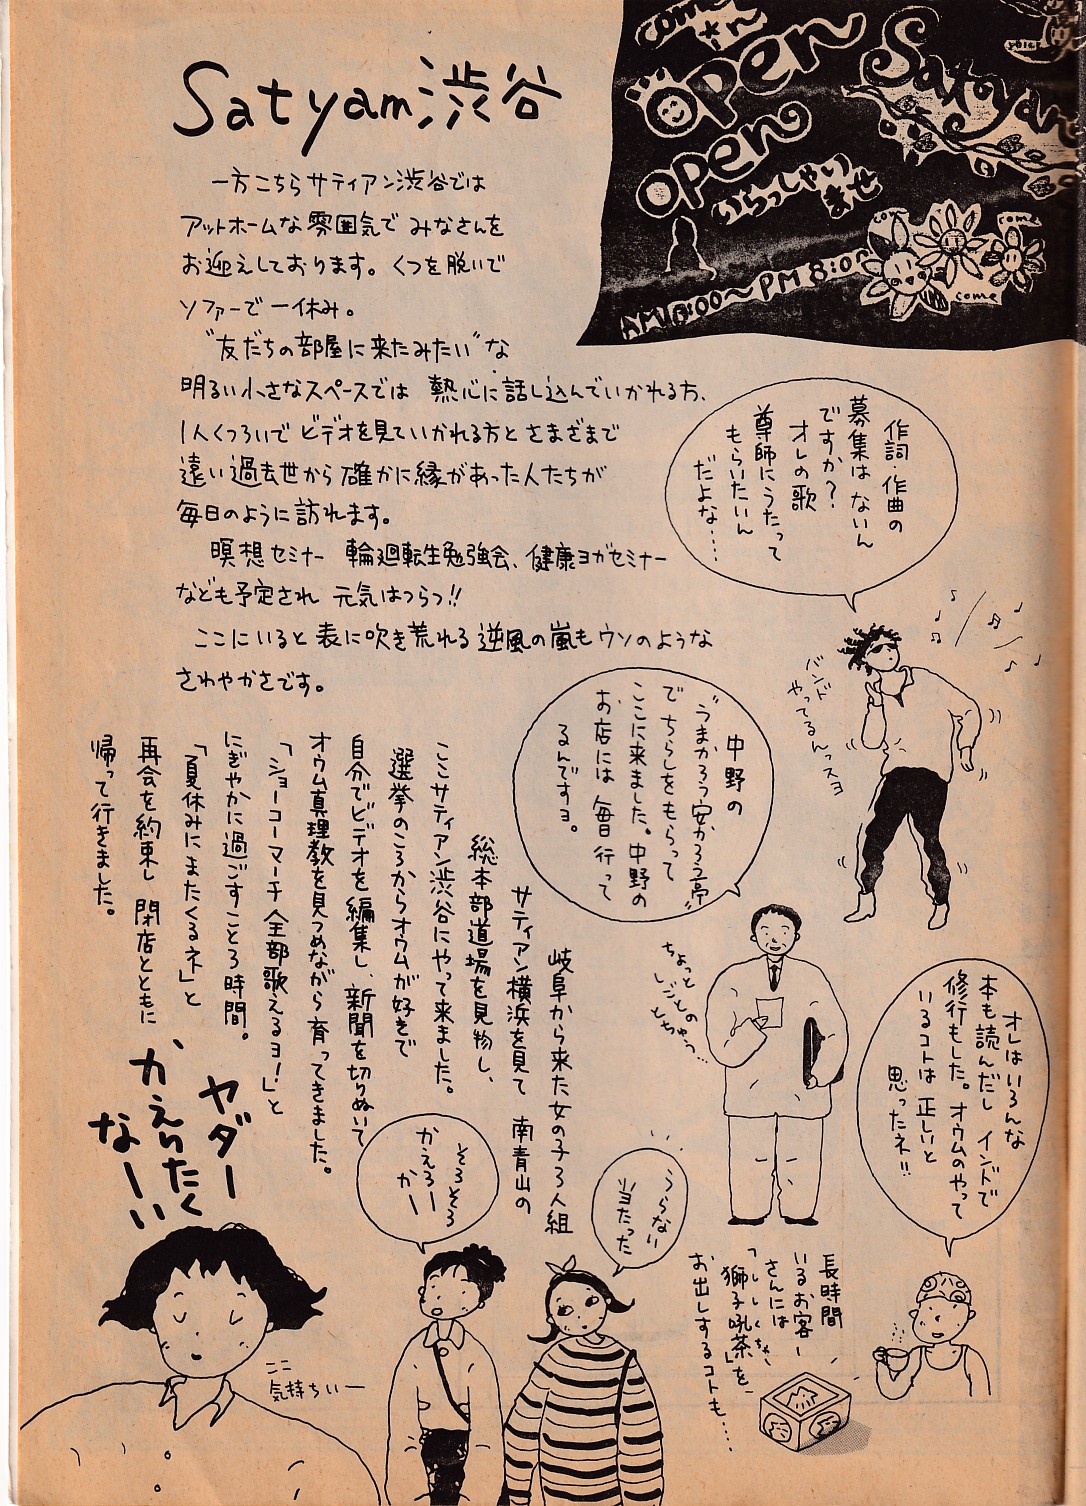 Satyam渋谷
come
in
Open
Satyam
open
いらっしゃい
ませ
com
come
come
PM 8:00
一方こちらサティアン渋谷では
アットホームな雰囲気で みなさんを
お迎えしております。くつを脱いで
ソファーで一休み。
“友だちの部屋に来たみたい”な
明るい小さなスペースでは 熱心に話し込んでいかれる方、
1人くつろいでビデオを見ていかれる方とさまざまで
遠い過去世から確かに縁があった人たちが
毎日のように訪れます。
瞑想セミナー 輪廻転生勉強会、健康ヨガセミナー
なども予定され 元気はつらつ!!
ここにいると表に吹き荒れる逆風の嵐もウソのような
さわやかさです。
作詞・作曲の
募集はないん
ですか?
オレの歌
尊師にうたって
もらいたいん
だよな‥‥
バンド
やってるんっスヨ
中野の
“うまかろう安かろう亭”
でちらしをもらって
ここに来ました。中野の
お店には毎日行って
るんですヨ。
ちょっと
しごとの
とちゅう…
オレはいろんな
本も読んだし インドで
修行もした。オウムのやって
いるコトは 正しいと
思ったネ!!
岐阜から来た女の子3人組
サティアン横浜を見て 南青山の
総本部道場を見物し、
ここサティアン渋谷にやって来ました。
選挙のころからオウムが好きで
自分でビデオを編集し、新聞を切りぬいて
オウム真理教を見つめながら育ってきました。
「ショーコーマーチ全部歌えるヨ!」と
にぎやかに過ごすこと3時間。
「夏休みにまたくるネ」と
再会を約束し 閉店とともに
帰って行きました。
ヤダー
かえりたく
なーい
そろそろ
かえろー
かー
うらない
当たった
ここ
気持ちいー
長時間
いるお客
さんには
「獅子吼茶」を、
ししくちゃ
お出しするコトも‥‥